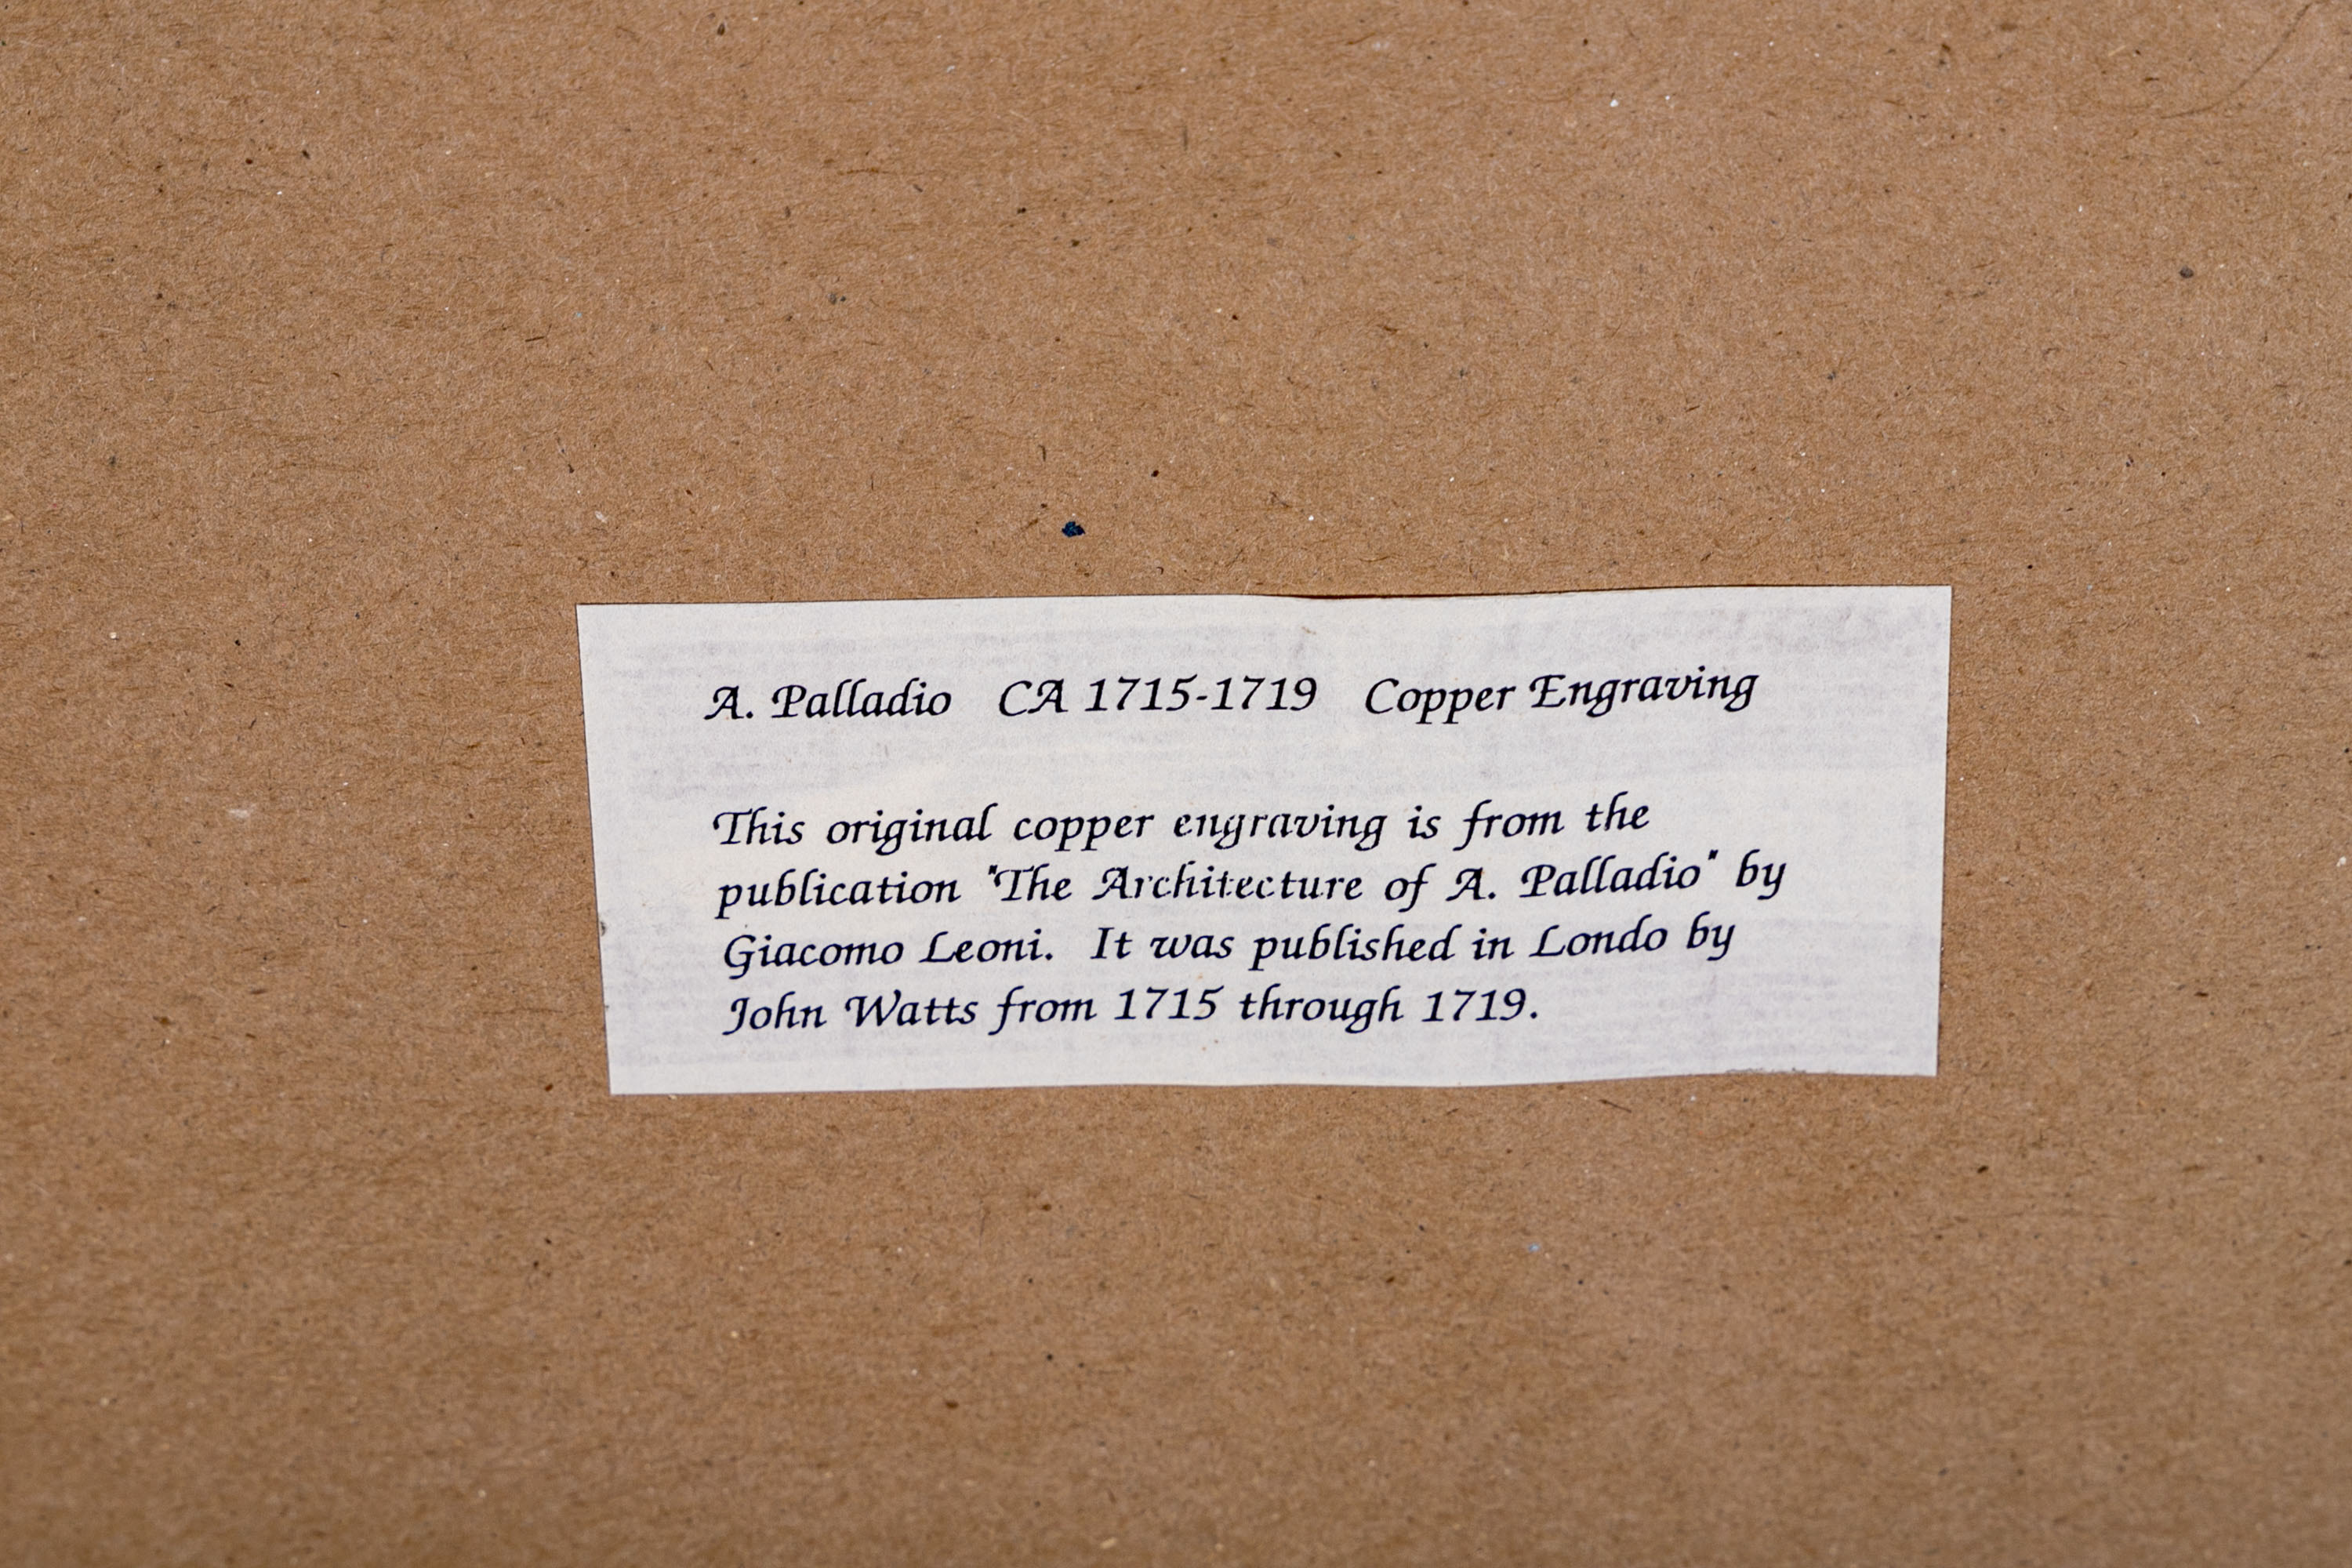 A. Palladio CA 1715-1719 Copper Engraving
This original copper engraving is from the
publication "The Architecture of A. Palladio" by
Giacomo Leoni. It was published in Londo by
John Watts from 1715 through 1719.